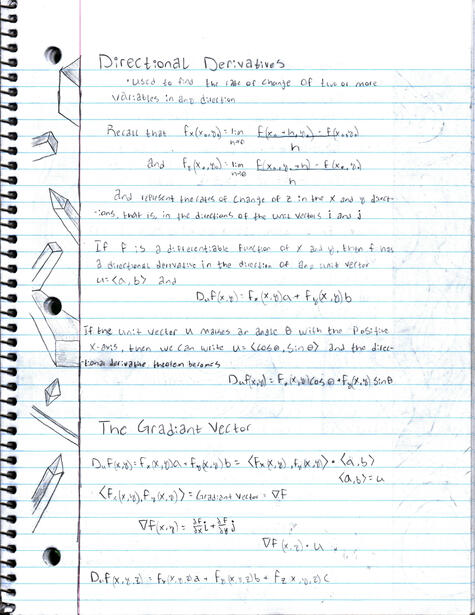 Directional Derivatives
• Used to find the rate of change of two or more
variables in any direction
Recall that fx(x₀,y₀) = lim h→0 f(x₀+h, y₀) - f(x₀,y₀) / h
and fy(x₀,y₀) = lim h→0 f(x₀,y₀+h) - f(x₀,y₀) / h
and represent the rates of change of z in the x and y direct-
-ions, that is, in the directions of the unit vectors i and j
If f is a differentiable function of x and y, then f has
a directional derivative in the direction of any unit vector
u=⟨a,b⟩ and
Duf(x,y) = fx(x,y)a + fy(x,y)b
If the unit vector u makes an angle θ with the positive
x-axis, then we can write u=⟨cosθ, sinθ⟩ and the direc-
tional derivative theorem becomes
Duf(x,y) = fx(x,y)cosθ + fy(x,y)sinθ
The Gradiant Vector
Duf(x,y) = fx(x,y)a + fy(x,y)b = ⟨fx(x,y), fy(x,y)⟩ • ⟨a,b⟩
⟨a,b⟩ = u
⟨fx(x,y), fy(x,y)⟩ = Gradiant Vector = ∇f
∇f(x,y) = ∂f/∂x i + ∂f/∂y j
∇f(x,y) • u
Duf(x,y,z) = fx(x,y,z)a + fy(x,y,z)b + fz x,y,z)c